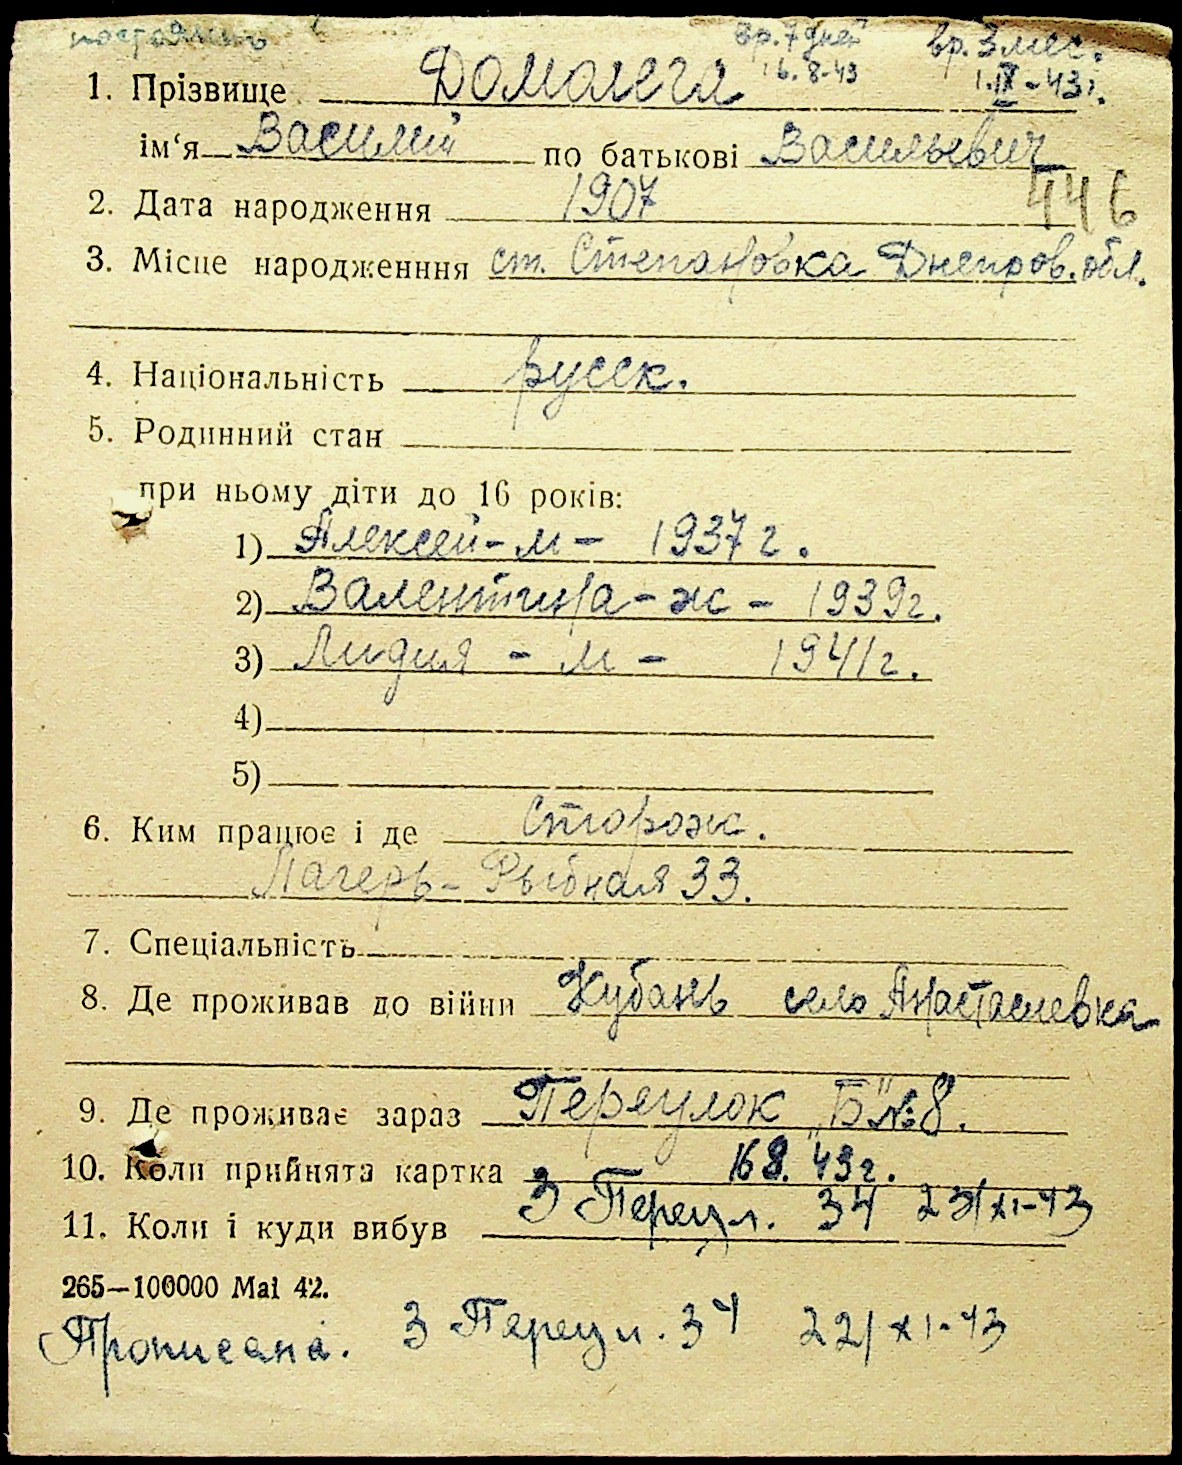 постоянно вр. 7 дней вр. 3 мес.
16.8-43 1.IX-43г.
1. Прізвище Домалега
ім‘я Василий по батькові Васильевич
2. Дата народження 1907
446
3. Місце народженння ст. Степановка Днепров. обл.
4. Національність русск.
5. Родинний стан
при ньому діти до 16 років:
1) Алексей - м - 1937 г.
2) Валентина - ж - 1939г.
3) Лидия - м - 1941г.
4)
5)
6. Ким працює і де Сторож.
Лагерь - Рыбная 33.
7. Спеціальність
8. Де проживав до війни Кубань село Анастасиевка
9. Де проживає зараз Переулок „Б“ № 8.
10. Коли прийнята картка 16 8. 43 г.
11. Коли і куди вибув 3 Переул. 34 23/XI-43
265—100000 Mai 42.
Прописана. 3 Переул. 34 22/XI-43